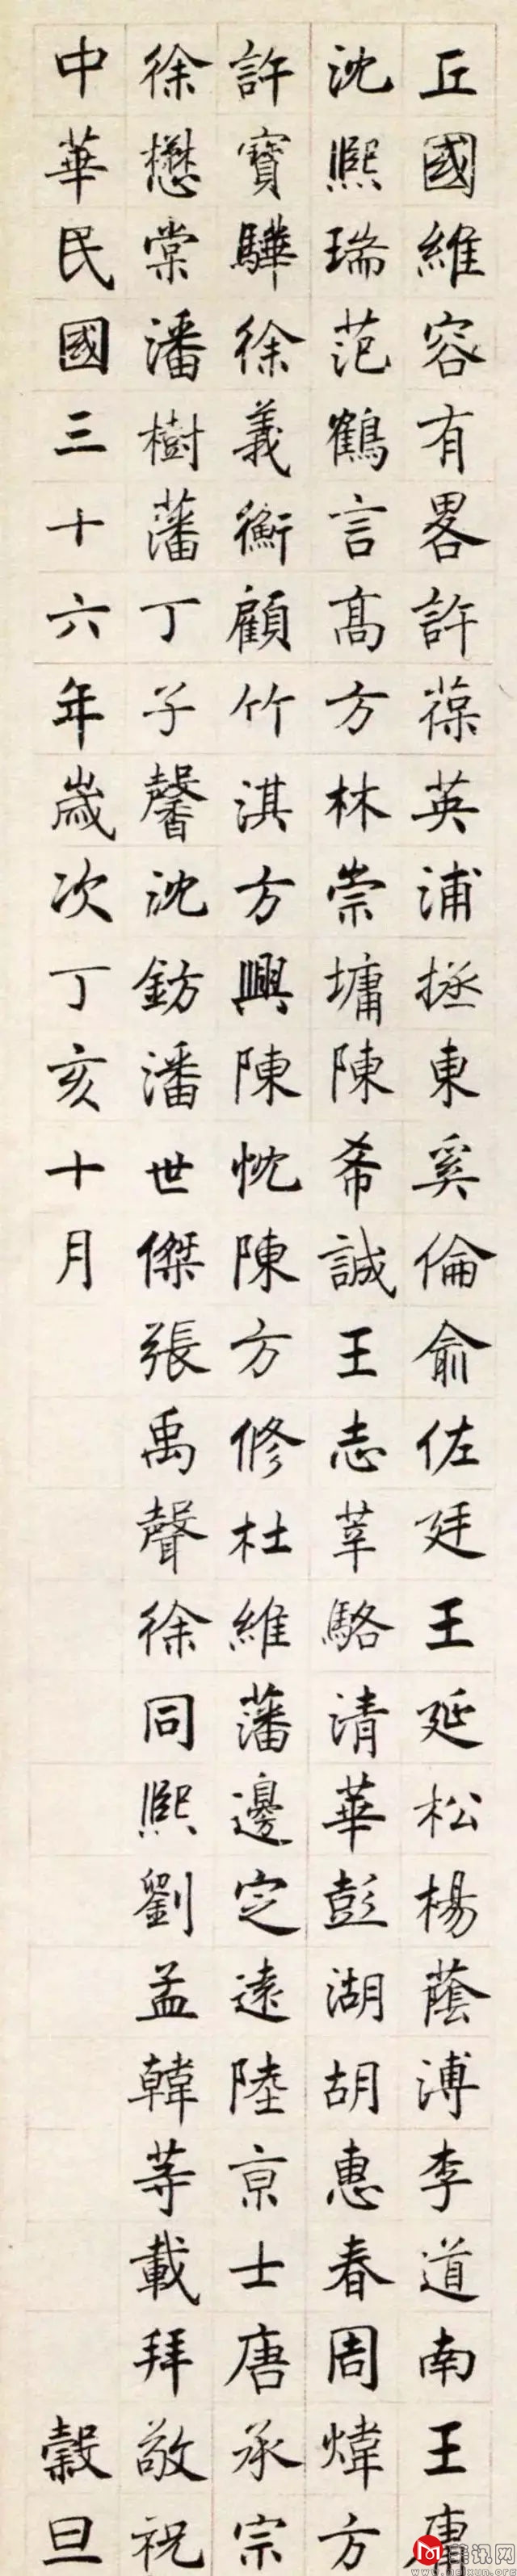 丘國維容有畧許葆英浦拯東奚倫俞佐廷王延松楊蔭溥李道南王
沈熙瑞范鶴言高方林崇墉陳希誠王志莘駱清華彭湖胡惠春周煒方
許寶驊徐義衡顧竹淇方興陳忱陳方修杜維藩邊定遠陸京士唐承宗
徐懋棠潘樹藩丁子馨沈鈁潘世傑張禹聲徐同熙劉孟韓等載拜敬祝
中華民國三十六年歲次丁亥十月
穀旦